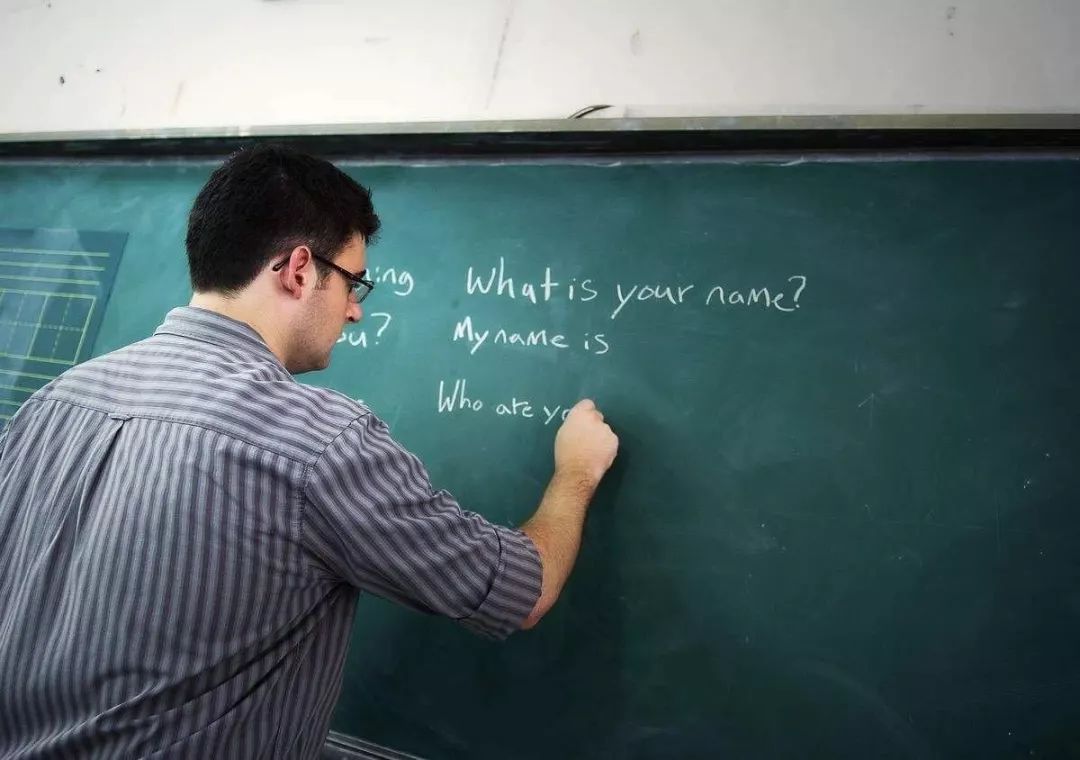 What is your name?
My name is
Who are yo